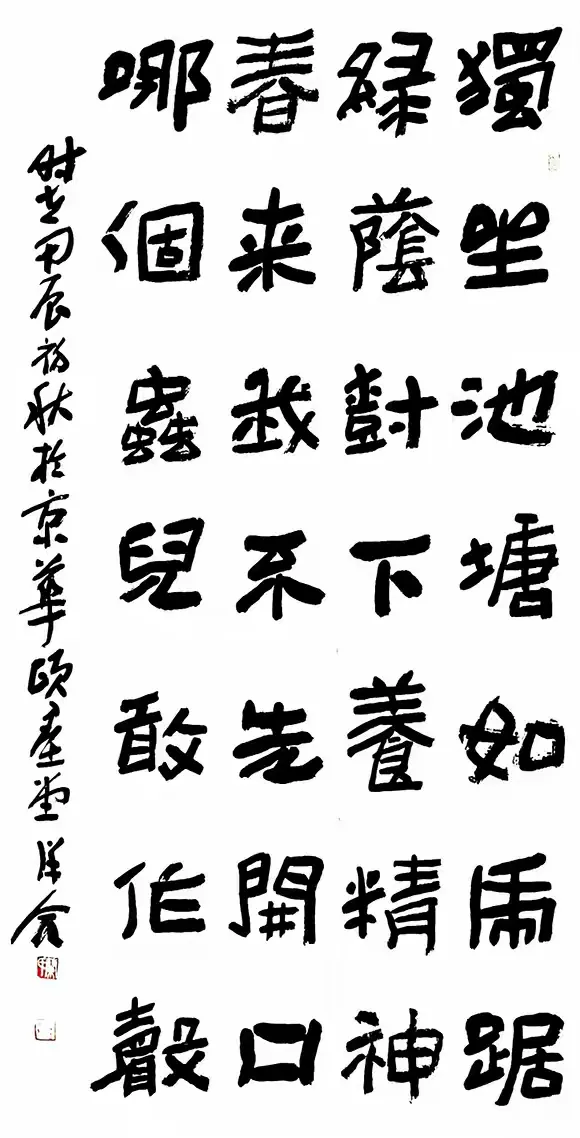 獨坐池塘如虎踞
綠蔭尌下養精神
春来我不先開口
哪個蟲兒敢作聲
时在甲辰初秋於京華頤堂